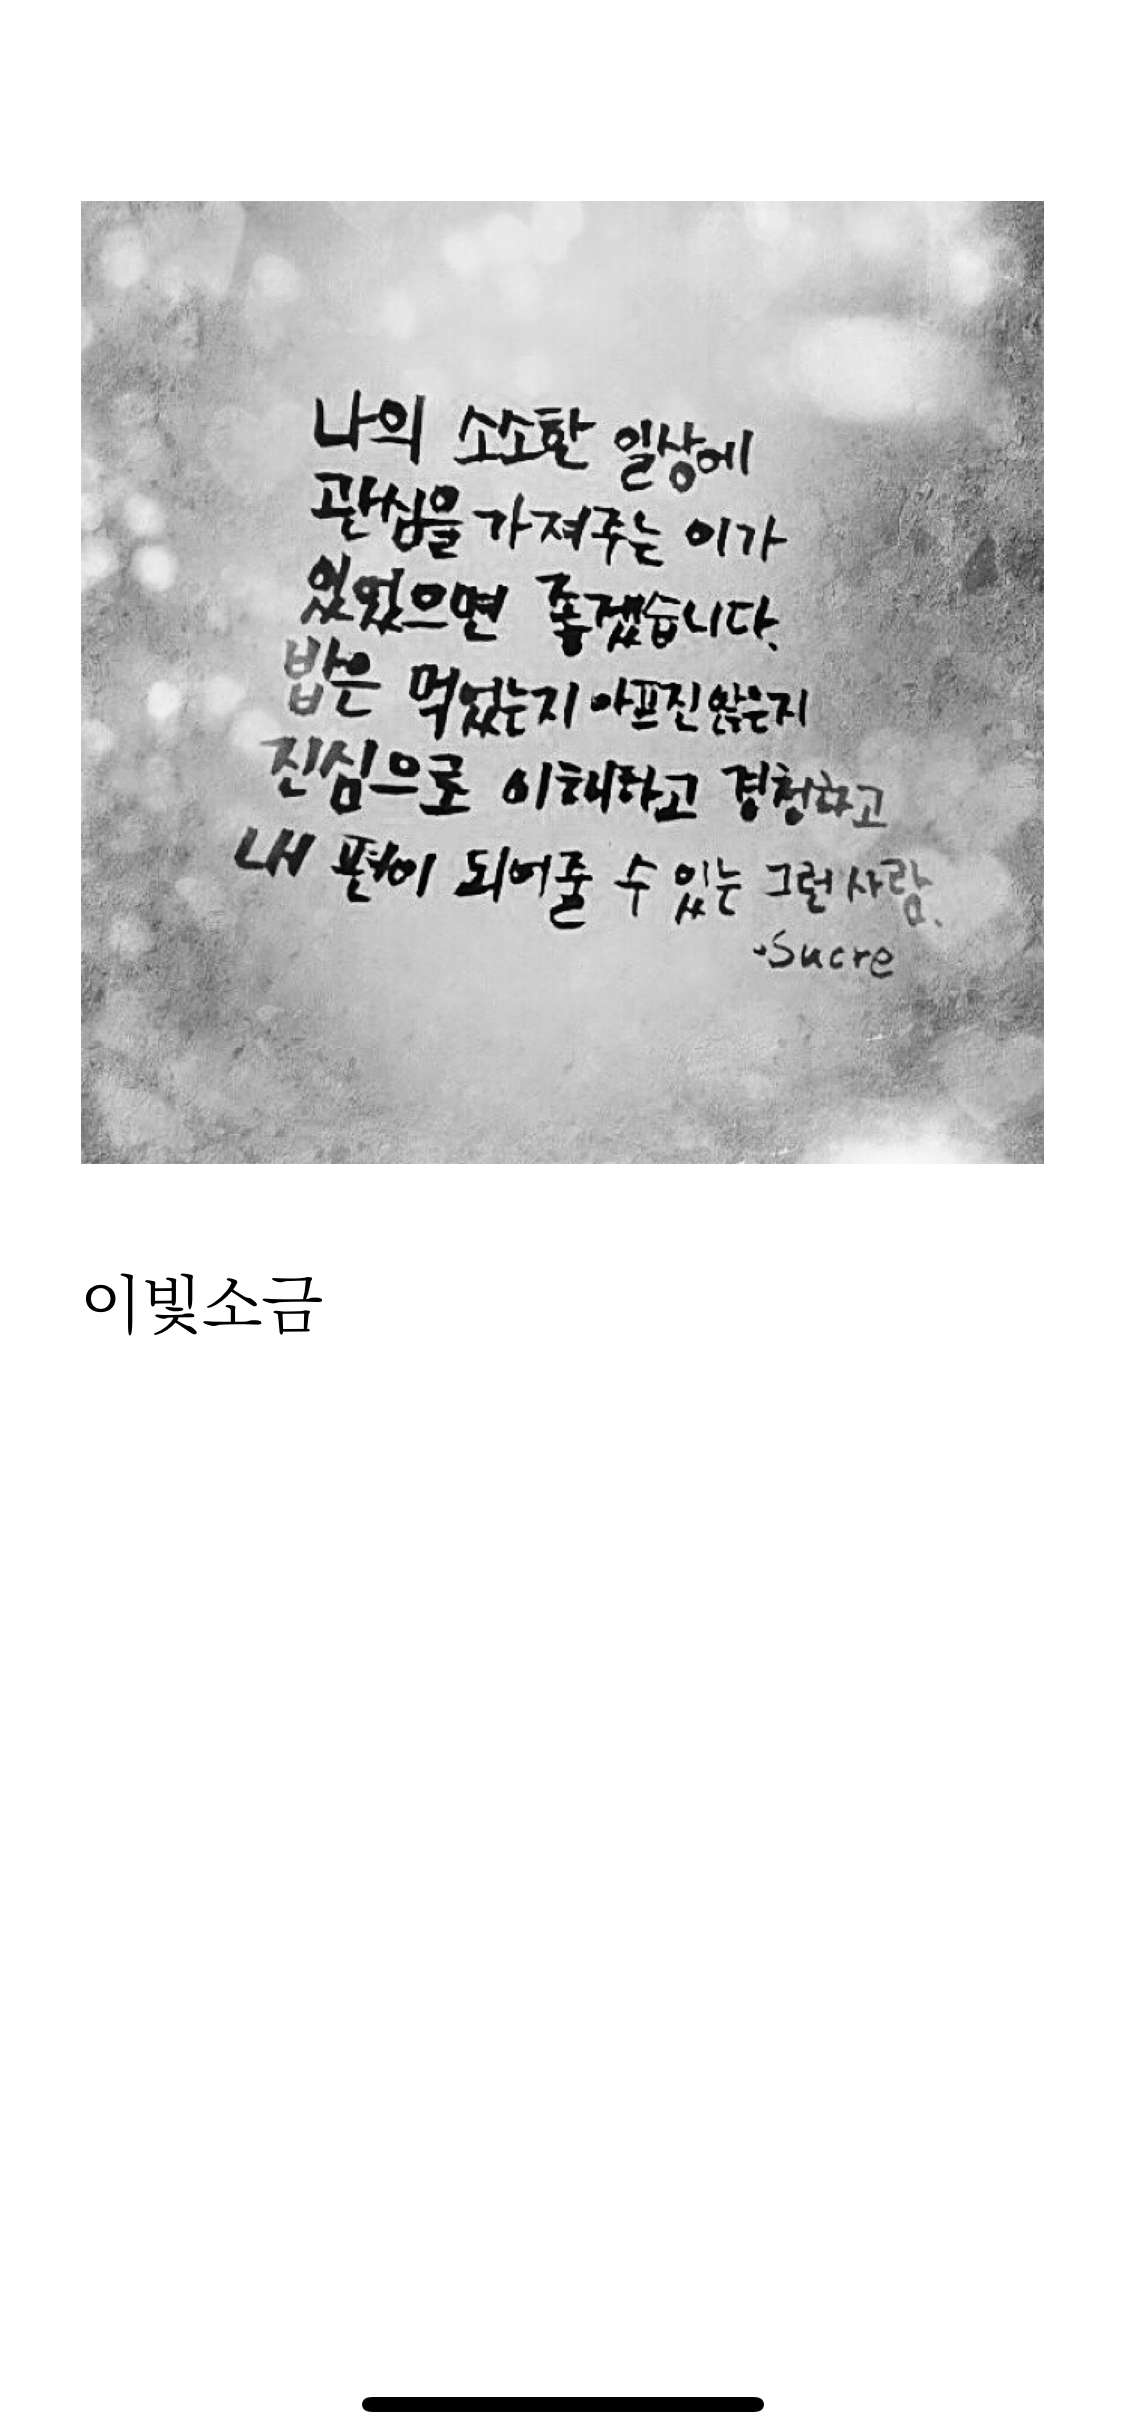 나의 소소한 일상에
관심을 가져주는 이가
있었으면 좋겠습니다.
밥은 먹었는지 아프진 않은지
진심으로 이해하고 경청하고
내 편이 되어줄 수 있는 그런 사람.
-Sucre
이빛소금